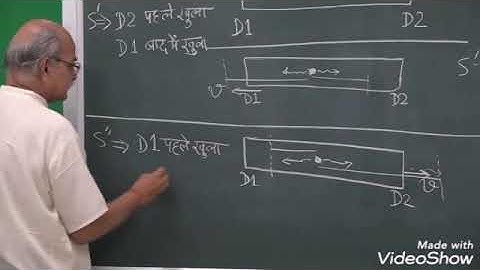 S' ⇒ D2 पहले खुला
D1 बाद में खुला
D1 D2
S'
v D1 D2
S' ⇒ D1 पहले खुला
D1 D2 v
Made with
VideoShow